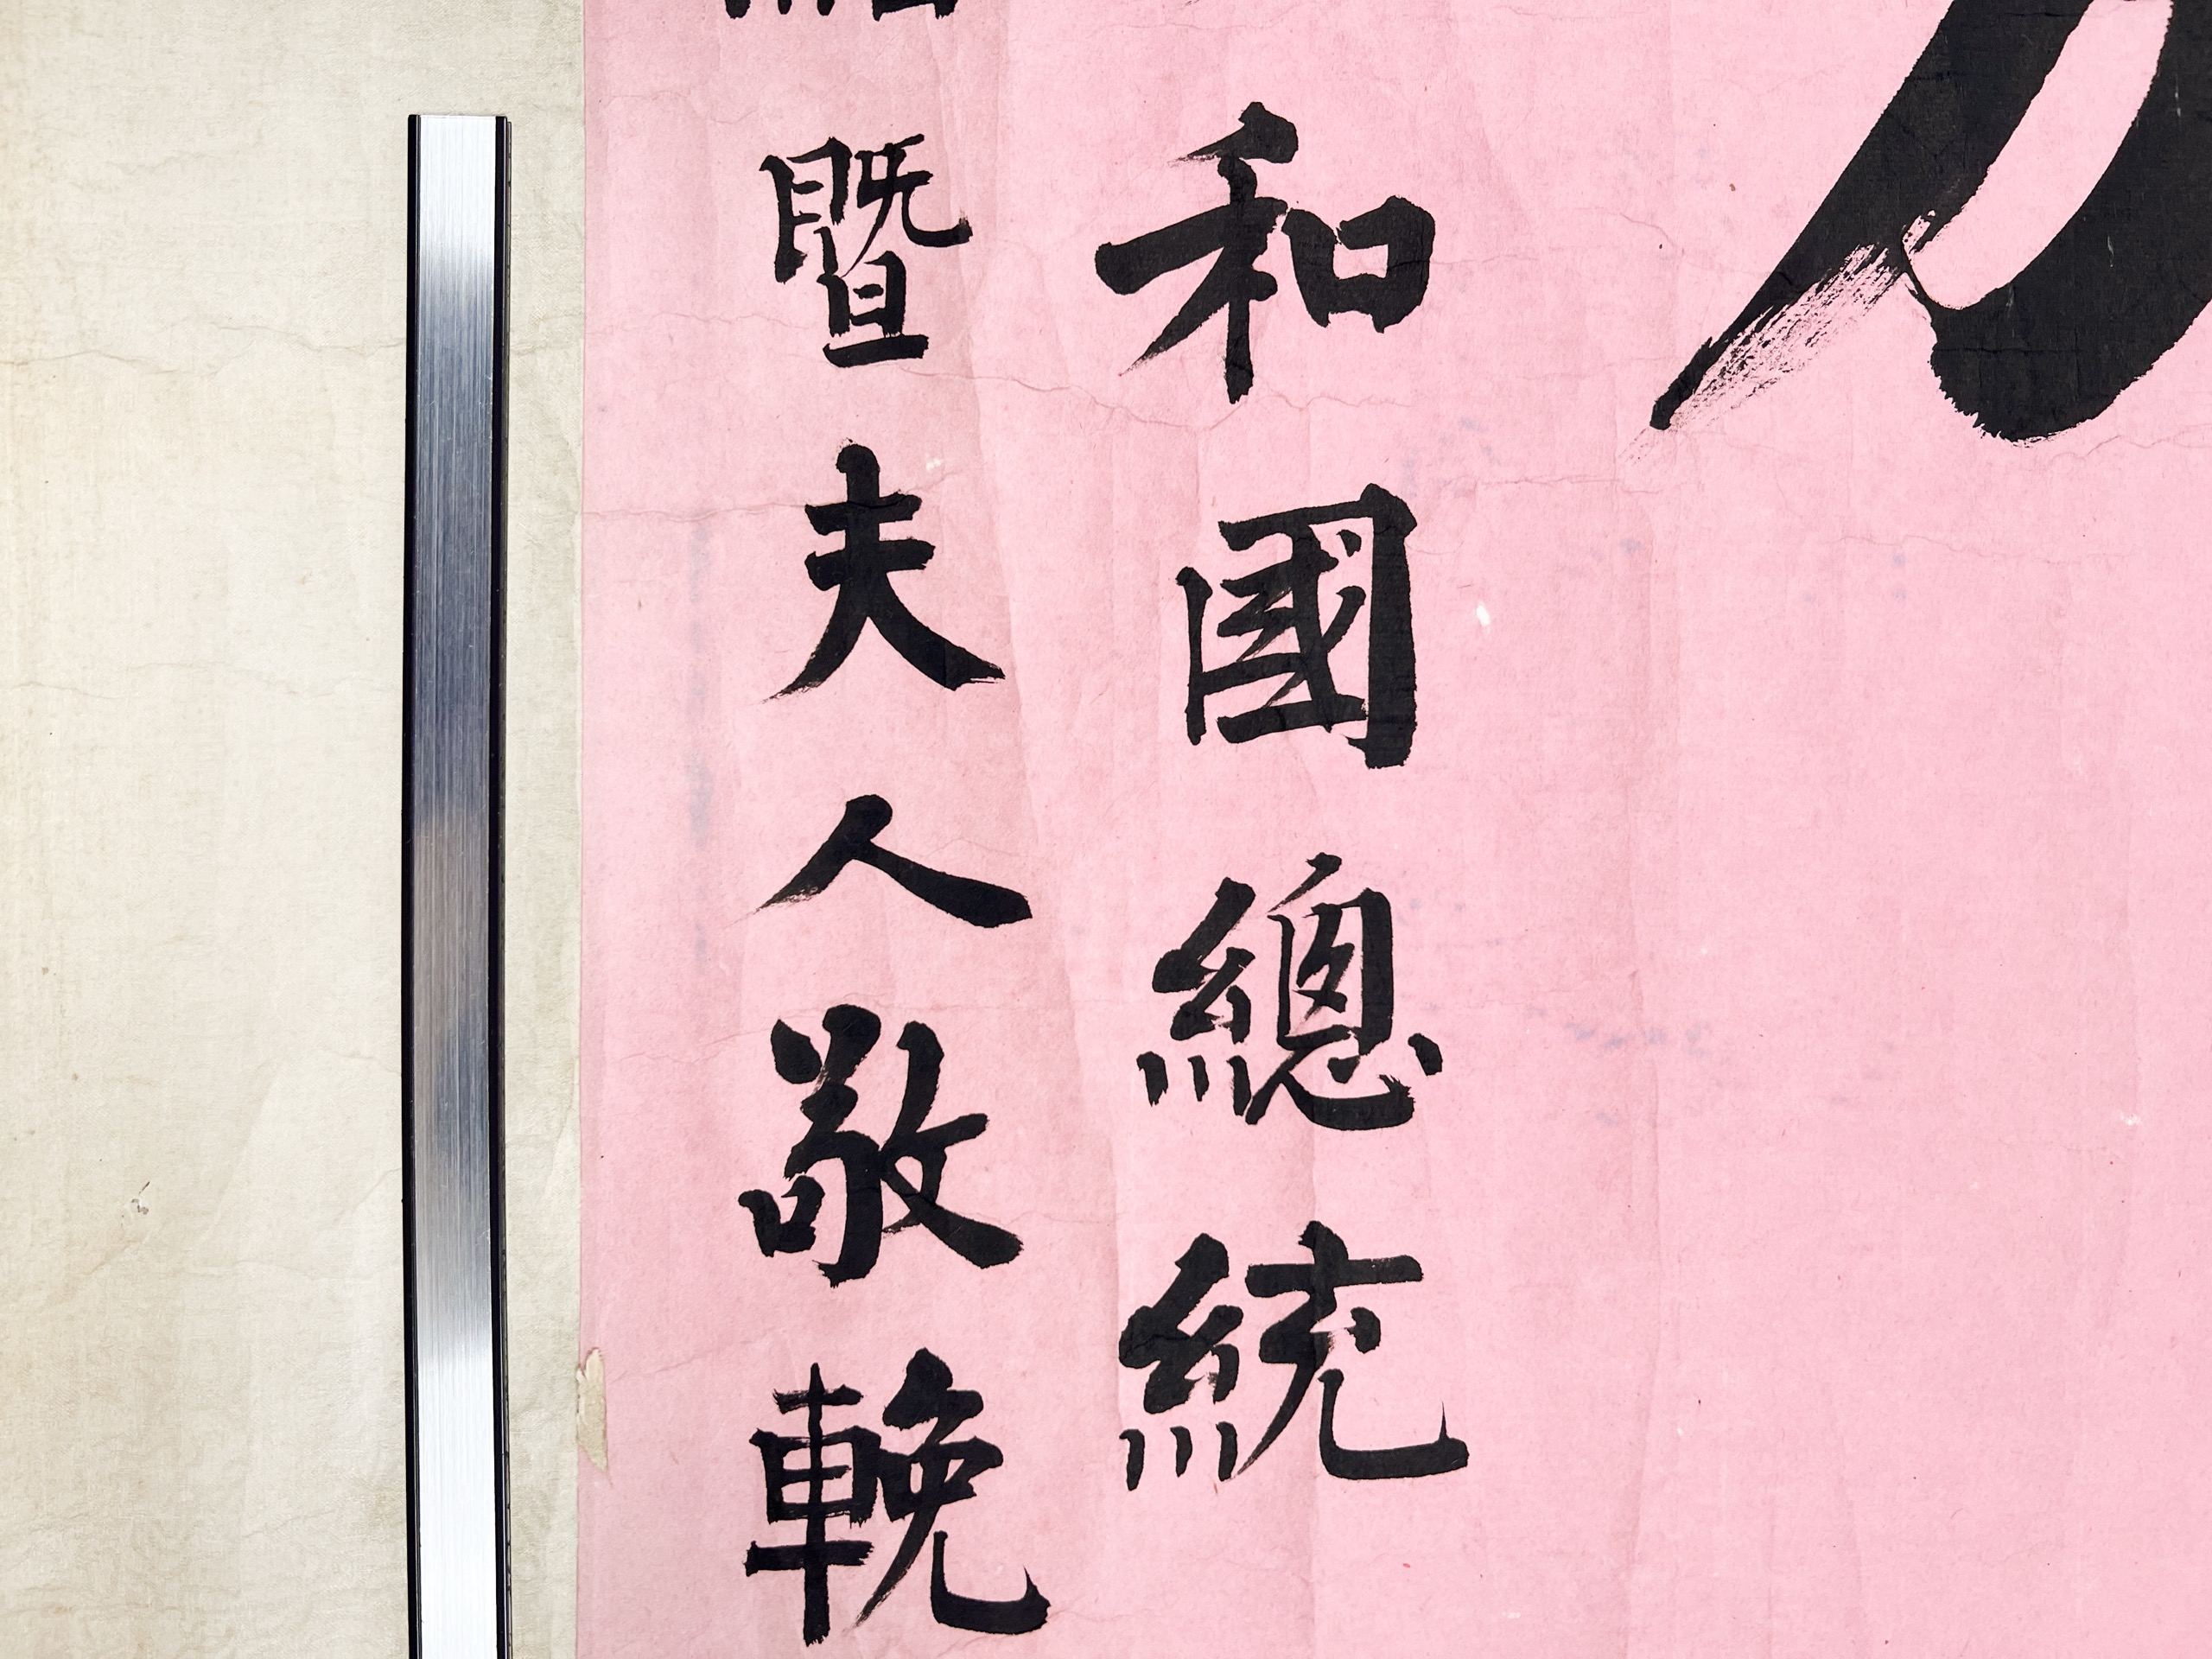 和國總統
暨夫人敬輓